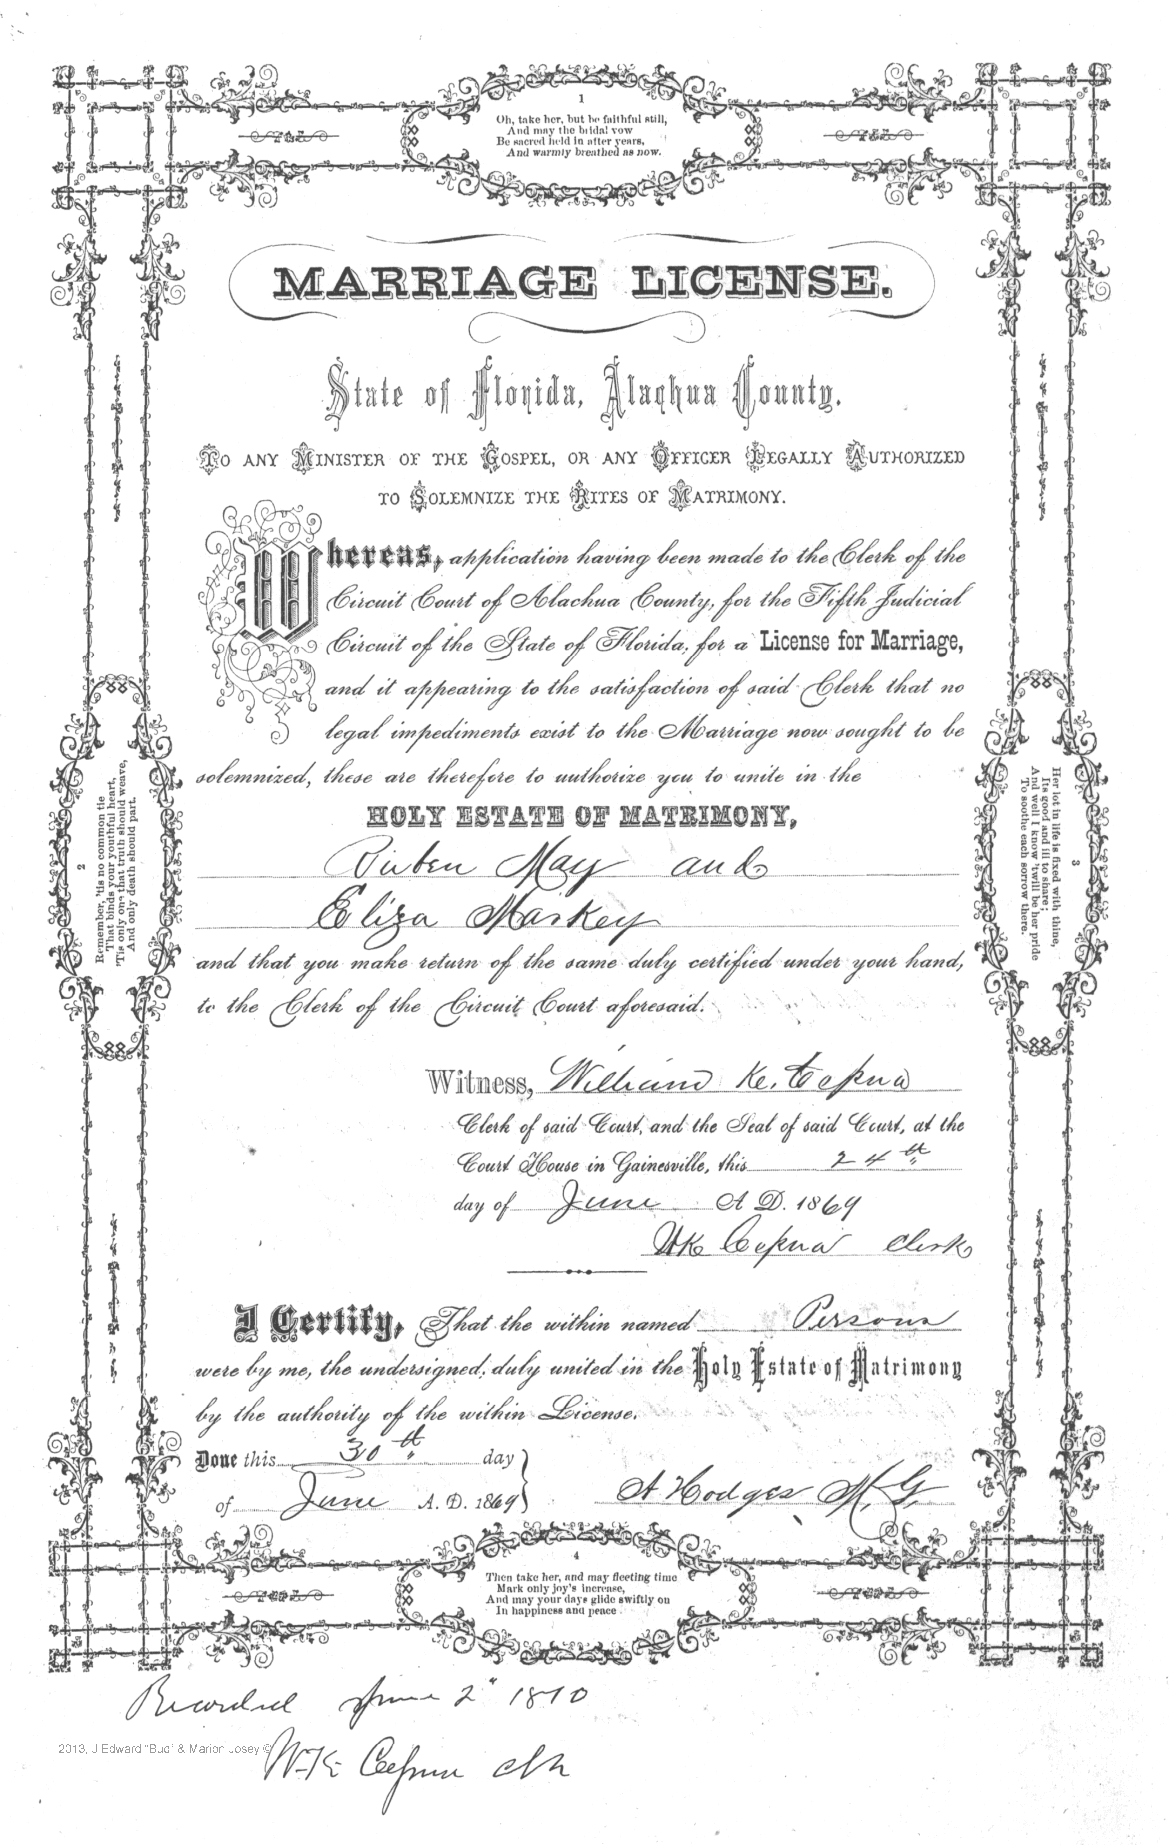 1
Oh, take her, but be faithful still,
And may the bridal vow
Be sacred held in after years,
And warmly breathed as now.
MARRIAGE LICENSE.
State of Florida, Alachua County.
TO ANY MINISTER OF THE GOSPEL, OR ANY OFFICER LEGALLY AUTHORIZED
TO SOLEMNIZE THE RITES OF MATRIMONY.
Whereas, application having been made to the Clerk of the
Circuit Court of Alachua County, for the Fifth Judicial
Circuit of the State of Florida, for a License for Marriage,
and it appearing to the satisfaction of said Clerk that no
legal impediments exist to the Marriage now sought to be
solemnized, these are therefore to authorize you to unite in the
HOLY ESTATE OF MATRIMONY,
Ruben May and
Eliza Markey
and that you make return of the same duly certified under your hand,
to the Clerk of the Circuit Court aforesaid.
Witness, William K. Cessna
Clerk of said Court, and the Seal of said Court, at the
Court House in Gainesville, this 24th
day of June A D. 1869
WK Cessna Clerk
I Certify, That the within named Persons
were by me, the undersigned, duly united in the Holy Estate of Matrimony
by the authority of the within License.
Done this 30th day
of June A. D. 1869
A Hodges M. G.
2
Remember, 'tis no common tie
That binds your youthful heart,
'Tis only one that truth should weave,
And only death should part.
3
Her lot in life is fixed with thine,
Its good and ill to share;
And well I know 'twill be her pride
To soothe each sorrow there.
4
Then take her, and may fleeting time
Mark only joy's increase,
And may your days glide swiftly on
In happiness and peace
Recorded June 2" 1870
2013, J Edward "Bud" & Marion Josey ©
W. K. Cessna clk